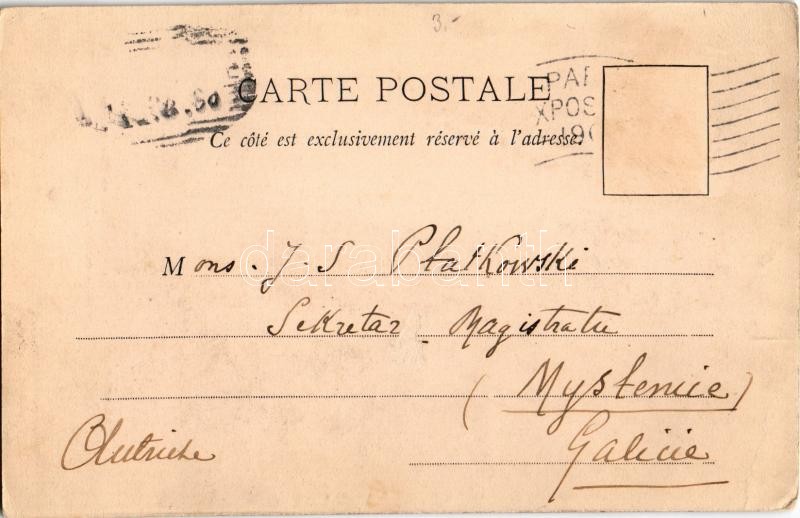 3.-
CARTE POSTALE
Ce côté est exclusivement réservé à l'adresse.
PAR
XPOS
190
Mons. J. S Płatkowski
Sekretarz Magistratu
(Myslenice)
Autriche
Galicie
darabanth